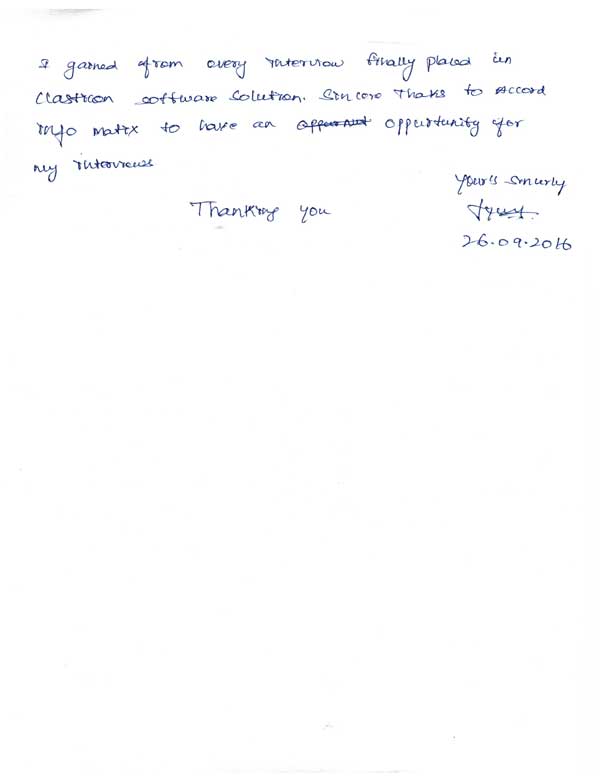 I gained from every interview finally placed in
Clasticon software solution. Sincere Thaks to Accord
info matrix to have an oppurtunity for
my interviews
Your's Sincerly
Thanking you
26.09.2016